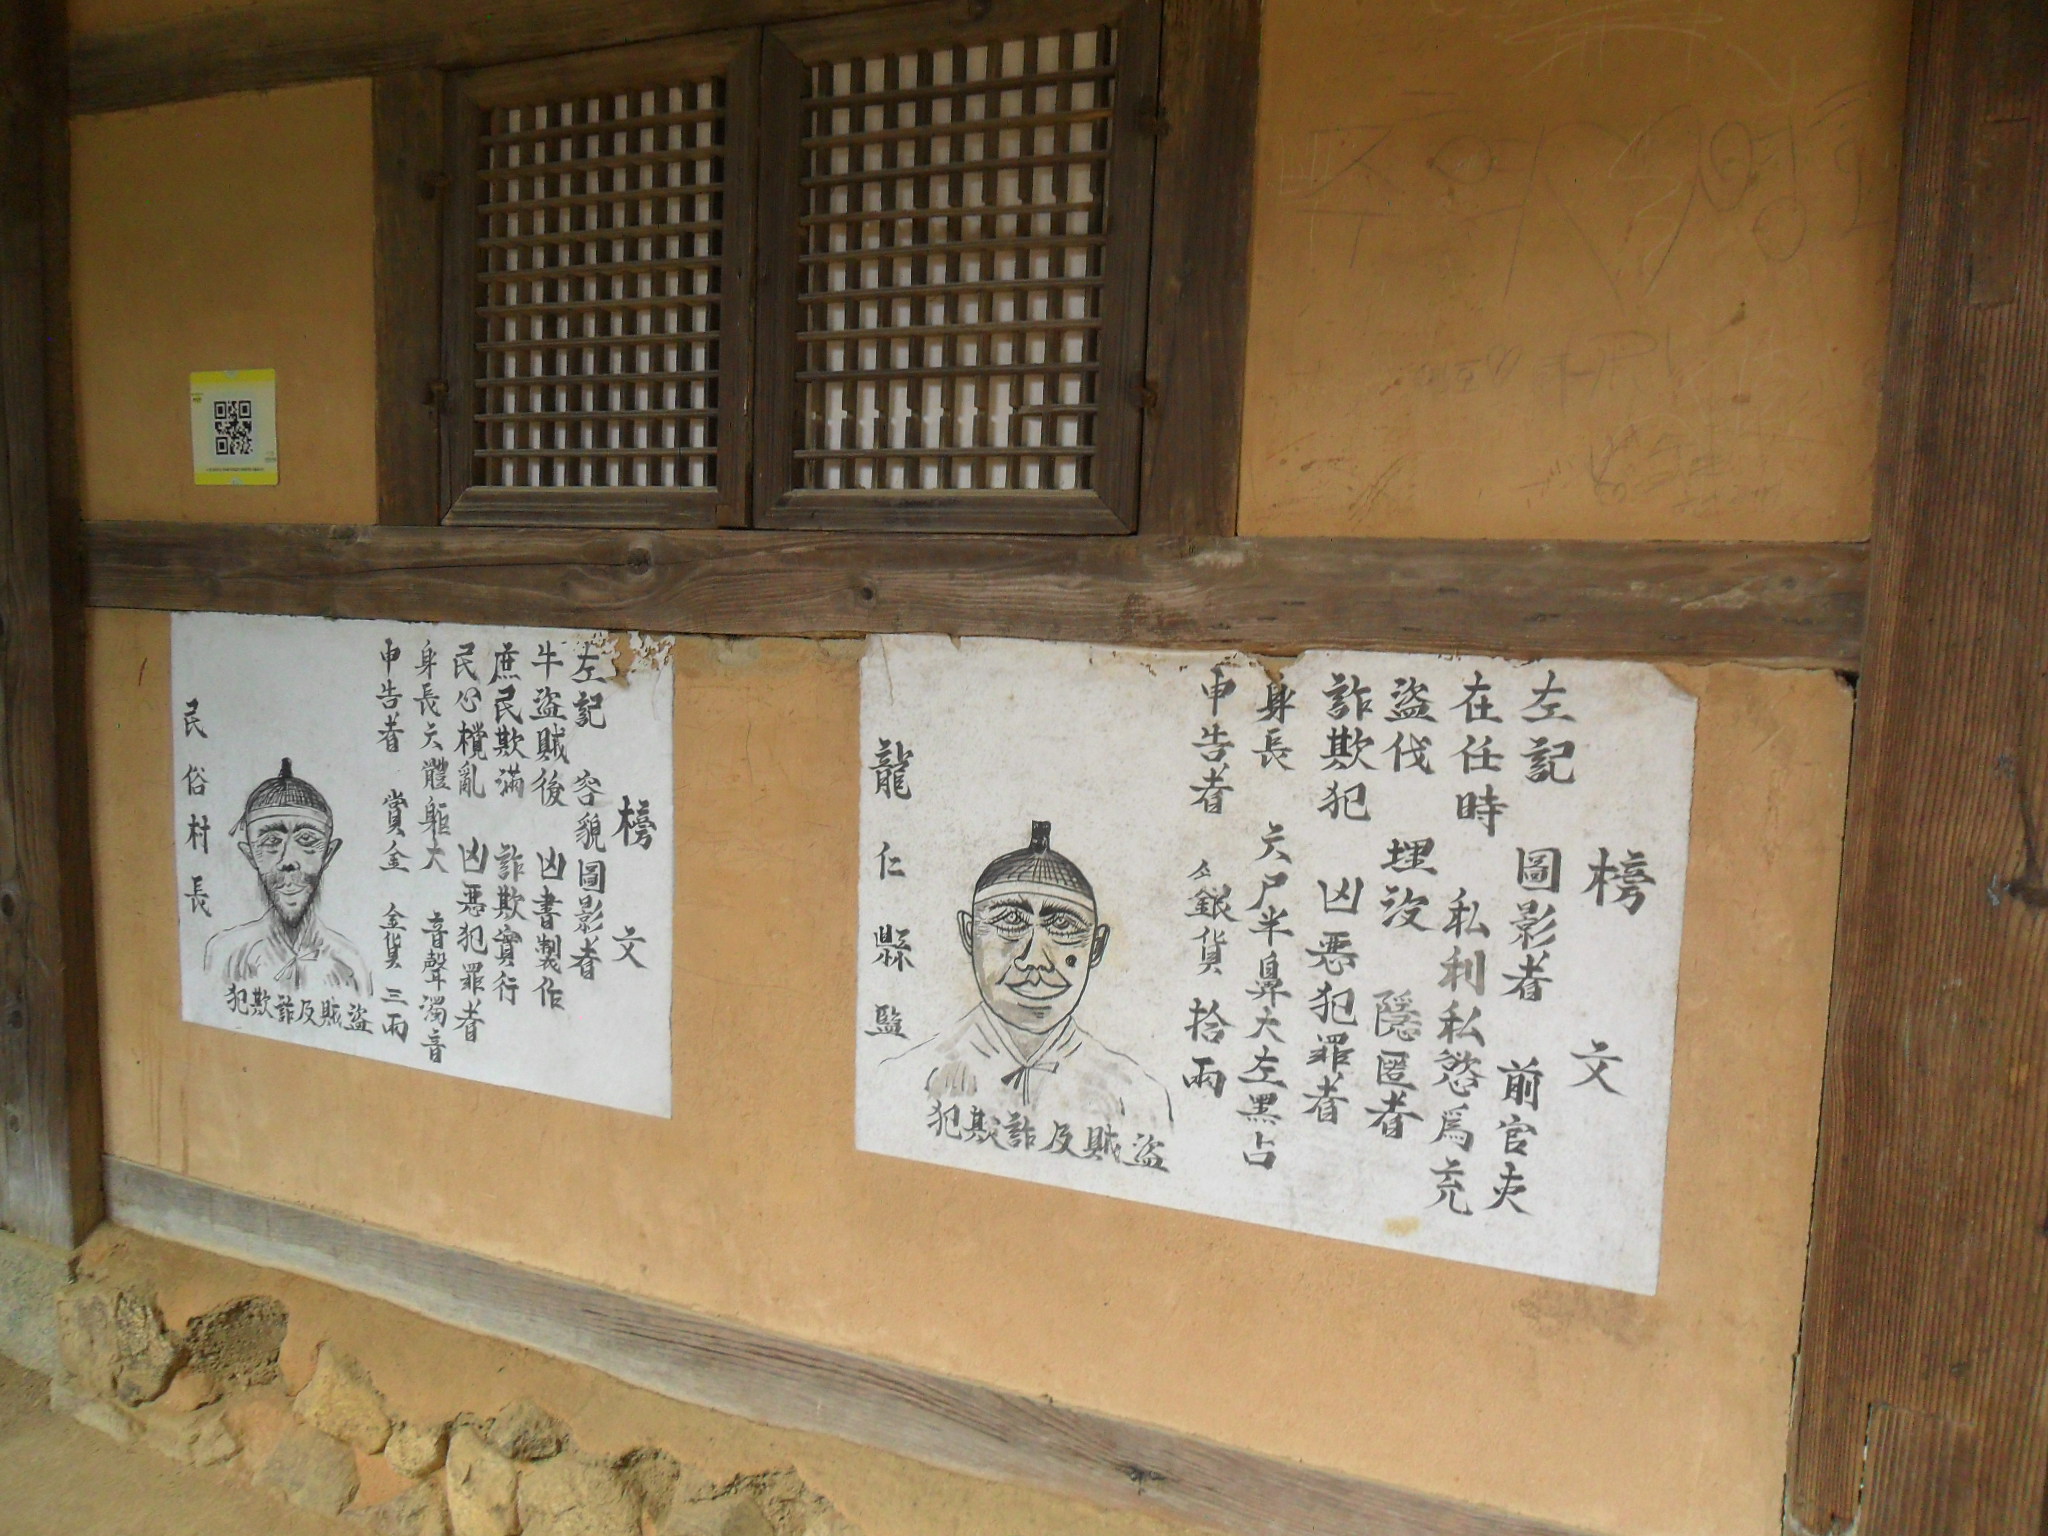 榜文
左記 圖影者 前官吏
在任時 私利私慾爲充
盜伐 埋沒 隱匿者
詐欺犯 凶惡犯罪者
身長 六尸半鼻大左黑占
申告者 銀貨 拾兩
盜賊及詐欺犯
龍仁縣監
榜文
左記 容貌圖影者
牛盜賊後 凶書製作
庶民欺滿 詐欺實行
民心攪亂 凶惡犯罪者
身長六體軀大 音聲濁音
申告者 賞金 金貨 三兩
盜賊及詐欺犯
民俗村長